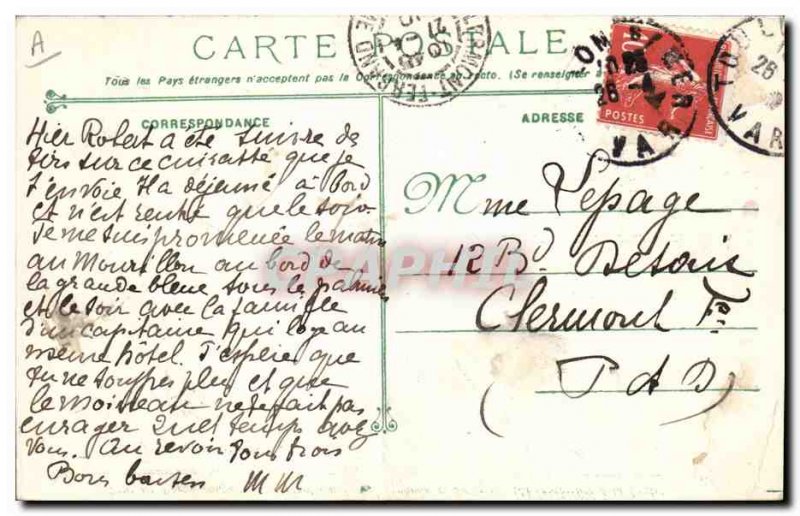 A
CARTE POSTALE
Tous les Pays étrangers n'acceptent pas la Correspondance au recto. (Se renseigner à
CORRESPONDANCE
Hier Robert a été suivre des
tirs sur ce cuirassé que je
t'envoie Il a déjeuné à bord
et n'est rentré que le soir
Je me suis promenée le matin
au Mourillon au bord de
la grande bleue sous les palmiers
et le soir avec la famille
d'un capitaine qui loge au
même hôtel. J'espère que
tu ne souffres plus et que
le moineau ne te fait pas
enrager Quel temps avez
vous. Au revoir tous trois
Bons baisers MM
ADRESSE
Mme Lepage
12 Bd Desaix
Clermont Fd
(P d D)
10
POSTES
TOULON
VAR
26
VAR
CLERMONT-FERRAND
PUY DE DOME
CPARAMA